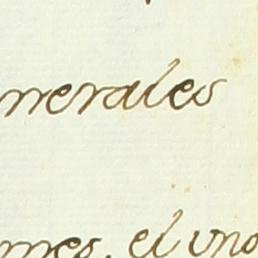 merales
mes, el uno